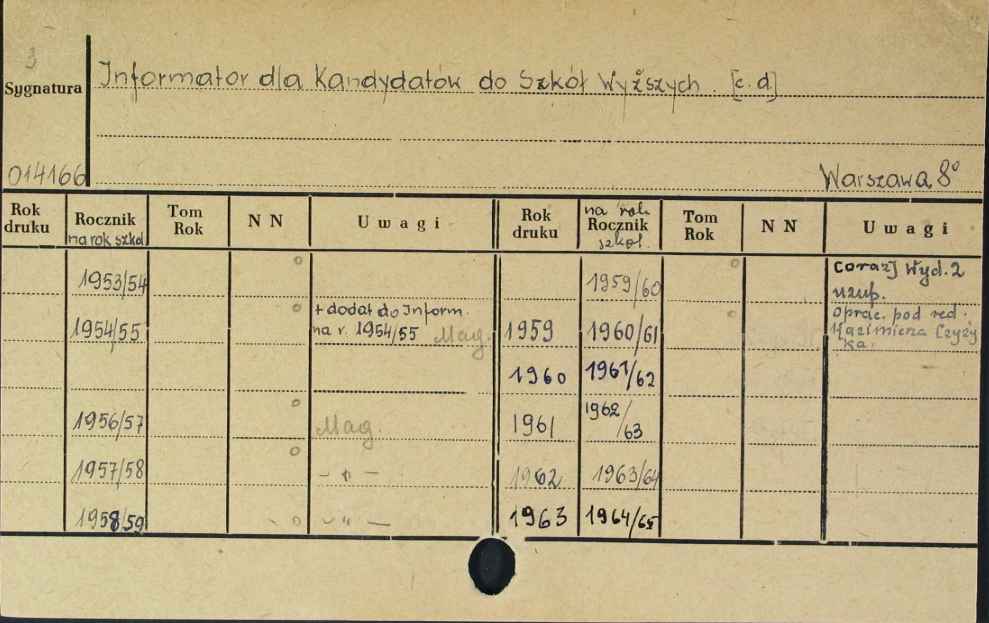 3
Informator dla Kandydatów do Szkół Wyższych. [c.d]
Sygnatura
014166
Warszawa 8°
Rok druku Rocznik na rok szkol Tom Rok N N Uwagi Rok druku na rok Rocznik szkol. Tom Rok N N Uwagi
1953/54 1959/60 wyd. 2 uzup.
1954/55 + dodat do Inform. na r. 1954/55 Mag. 1959 1960/61 Oprac. pod red. Kazimierza Czyżyka.
1960 1961/62
1956/57 Mag. 1961 1962/63
1957/58 – " – 1962 1963/64
1958/59 – " – 1963 1964/65